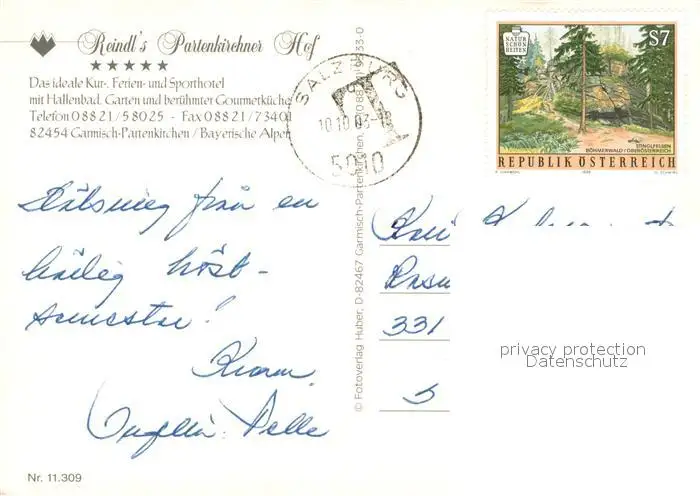 Reindl's Partenkirchner Hof
★★★★★
Das ideale Kur-, Ferien- und Sporthotel
mit Hallenbad, Garten und berühmter Gourmetküche
Telefon 0 88 21 / 5 80 25 - Fax 0 88 21 / 7 34 01
82454 Garmisch-Partenkirchen / Bayerische Alpen
SALZBURG
T
10.10.03-18
5010
NATUR
SCHÖN
HEITEN
S7
STINGLFELSEN
BÖHMERWALD / OBERÖSTERREICH
REPUBLIK ÖSTERREICH
Hälsning från en
härlig höst-
semester!
Kram
Pelle
331
S
© Fotoverlag Huber, D-82467 Garmisch-Partenkirchen,
privacy protection
Datenschutz
Nr. 11.309